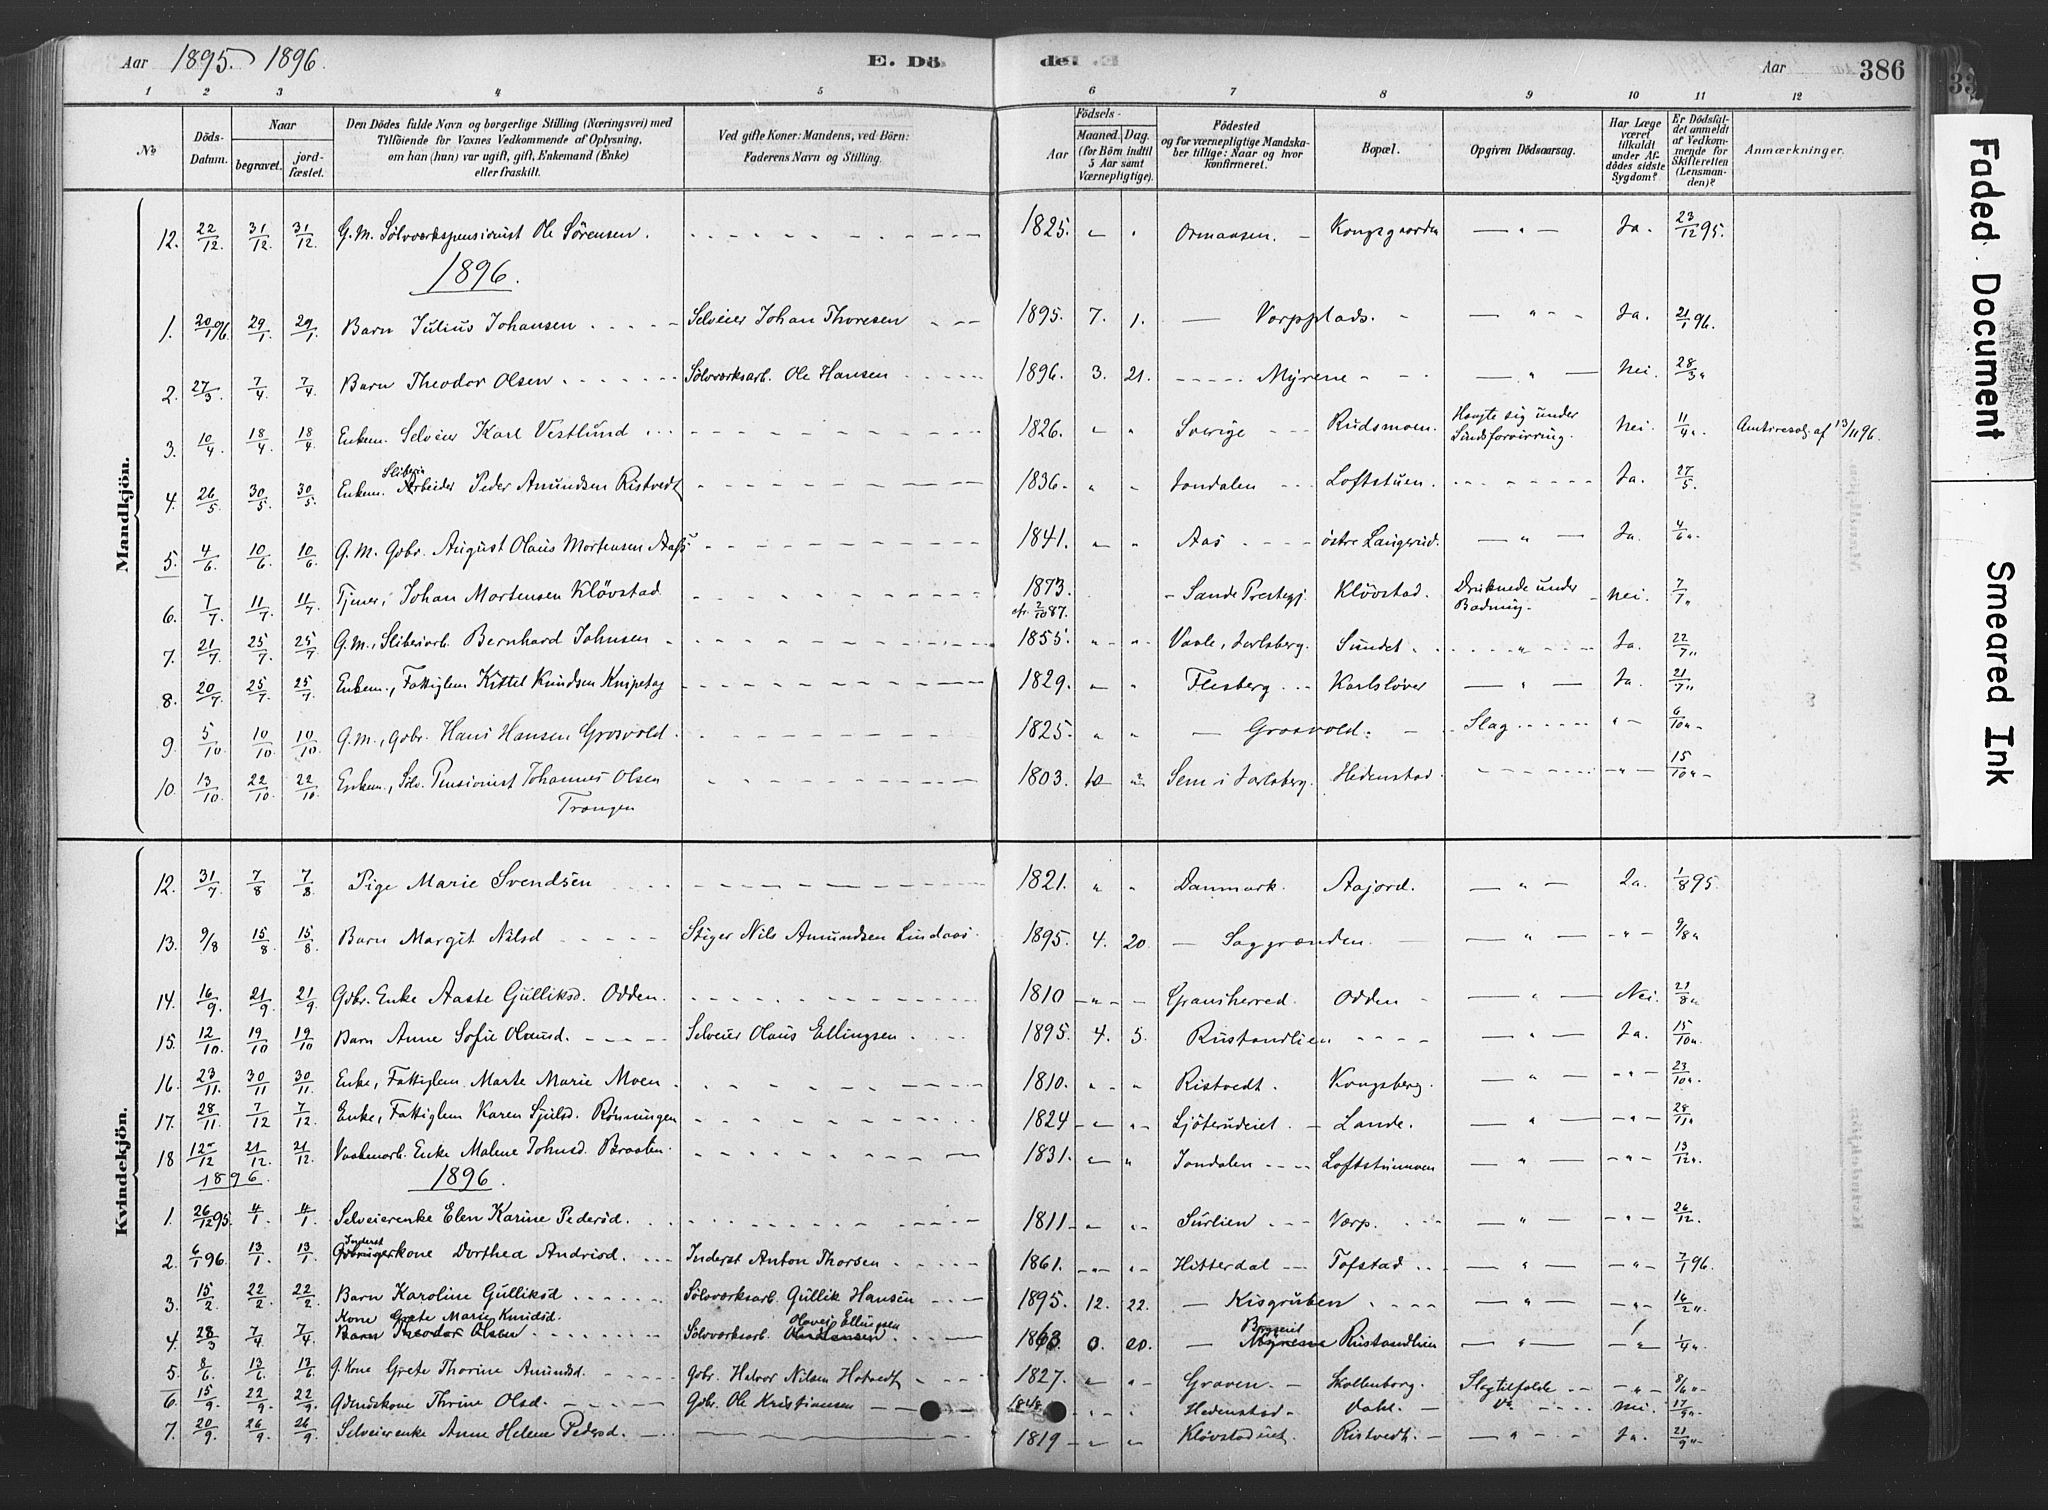 Aar 1895. 1896.
E. Dö
de
Aar
386
1 2 3 4 5 6 7 8 9 10 11 12
No
Döds-Datum.
Naar
begravet.
jord-fæstet.
Den Dödes fulde Navn og borgerlige Stilling (Næringsvei) med
Tilföiende for Voxnes Vedkommende af Oplysning,
om han (hun) var ugift, gift, Enkemand (Enke)
eller fraskilt.
Ved gifte Koner: Mandens, ved Börn:
Faderens Navn og Stilling.
Födsels-
Aar
Maaned. Dag.
(for Börn indtil
5 Aar samt
Værnepligtige).
Födested
og for værnepligtige Mandska-
ber tillige: Naar og hvor
konfirmeret.
Bopæl.
Opgiven Dödsaarsag.
Har Læge
været
tilkaldt
under Af-
dödes sidste
Sygdom?
Er Dödsfal-
det anmeldt
af Vedkom-
mende for
Skifteretten
(Lensman-
den)?
Anmærkninger.
Mandkjön.
12. 22/12. 31/12. 31/12. G.M. Sölvværkspensionist Ole Sörensen. 1825. " " Ormaasen. Kongsgaarden " Ja. 23/12 95.
1896.
1. 20/1 96 29/1 29/1 Barn Julius Johansen Selveier Johan Thoresen 1895. 7. 1. Vorpplads. " Ja. 21/1 96.
2. 27/3 7/4 7/4 Barn Theodor Olsen Sölvværksarb. Ole Hansen 1896. 3. 21. Myrene " Nei. 28/3 "
3. 10/4 18/4 18/4 Enkem. Selveier Karl Vestlund 1826. " " Sverige Rudsmoen. Hængte sig under Sindsforvirring. Nei. 11/4 " Amtsresol. af 13/11 96.
4. 26/5 30/5 30/5 Enkem. Sliberi Arbeider Peder Amundsen Ristvedt 1836. " " Jondalen Loftstuen. Ja. 27/5
5. 4/6 10/6 10/6 G.M. Gbr. August Olaus Mortensen Aas 1841. " " Aas östre Langerud. " Ja. 4/6 "
6. 7/7 11/7 11/7 Tjener, Johan Mortensen Klövstad 1873 2/10 87. Sande Prestegj. Klövstad. Druknede under Badning. Nei. 7/7 "
7. 21/7 25/7 25/7 G.M., Sliberiarb. Bernhard Johnsen 1855 " " Vaale, Jarlsberg. Sundet. " Ja. 22/7 "
8. 20/7 25/7 25/7 Enkem., Fattiglem Kittel Knudsen Knipetag 1829. " " Flesberg Karlslöver " Ja. 21/7 "
9. 5/10 10/10 10/10 G.M., Gbr. Hans Hansen Grosvold. 1825. " " Grosvold. Slag " 6/10 "
10. 13/10 22/10 22/10 Enkem., Sölv. Pensionist Johannes Olsen 1803. 10 Sem i Jarlsberg. Hedenstad. " 15/10 "
Trangen
Kvindekjön.
12. 31/7 7/8 7/8 Pige Marie Svendsen 1821. " " Danmark. Aajord. " Ja. 1/8 95.
13. 9/8 15/8 15/8 Barn Margit Nilsd Stiger Nils Amundsen Lindaas. 1895. 4. 20. Saggrænden " " 9/8 "
14. 16/9 21/9 21/9 Gbr. Enke Aaste Gulliksd. Odden. 1810 " Gransherred. Odden " Nei. 21/8 "
15. 12/10 19/10 19/10 Barn Anne Sofie Olausd. Selveier Olaus Ellingsen 1895. 4. 5. Rustandlien " Ja. 15/10 "
16. 23/11 30/11 30/11 Enke, Fattiglem. Marte Marie Moen. 1810. " " Ristvedt. Kongsberg. " " 23/10 "
17. 28/11 7/12 7/12 Enke, Fattiglem Karen Sjulsd. Rönningen 1824 " " Ljöterudeiet. Lande. " " 28/11 "
18 12/12 21/12 21/12 Vaabenarb. Enke Malene Johnsd. Braaten 1831. " " Jondalen Loftstumoen " " 13/12 "
1896. 1896.
1. 26/12 95. 4/1 4/1 Selveierenke Elen Karine Pedersd. 1811 " " Surlien Vorp. " " 26/12.
2. 6/1 96 13/1 13/1 Inderst Gbrugerkone Dorthea Andrisd. Inderst Anton Thorsen 1861. " " Hitterdal Tofstad " " 7/1 96.
3. 15/2 22/2 22/2 Barn Karoline Gulliksd Sölvværksarb. Gullik Hansen 1895. 12. 22. Kisgruben " " 16/2 "
4. 28/3 7/4 7/4 Kone Grete Marie Knudsd. Barn Theodor Olsen Sölvværksarb. Olaves Ellingsen 1863 0. 20. Myrene Rustandlien " " 1/4 "
5. 8/6 13/6 13/6 G. Kone Grete Thorine Amundsd. Gbr. Halvor Nilsen Hotvedt 1827. " " Graven. Skollenborg. Slagtilfælde " 8/6 "
6. 15/9 22/9 22/9 Gdmdskone Thrine Olsd. Gbr. Ole Kristiansen 1848. " " Hedenstad Dahl. Nei. 17/9 "
7. 20/9 26/9 26/9 Selveierenke Anne Helene Pedersd. 1819 " " Klövstadeiet. Ristvedt. " Ja. 21/9 "
Faded Document
Smeared Ink